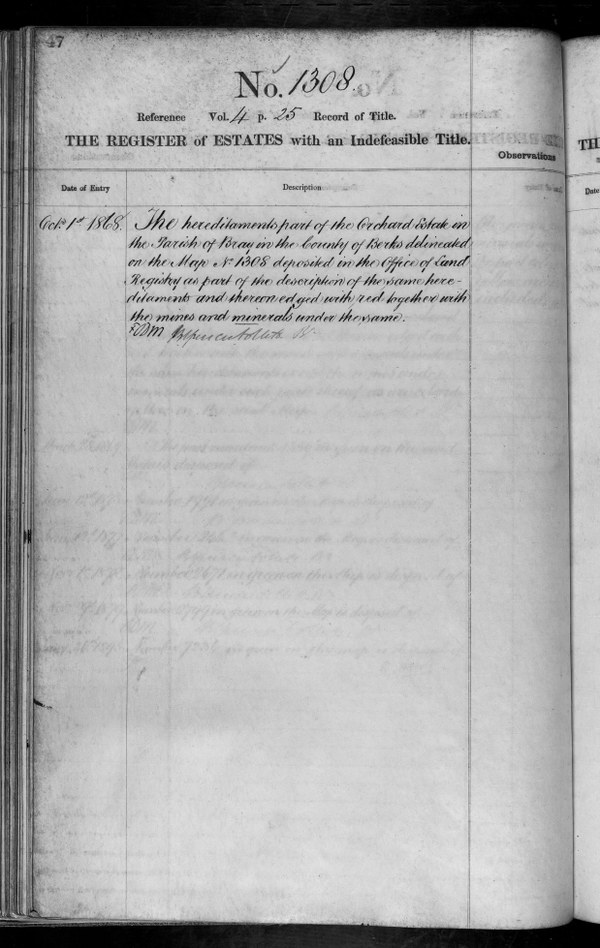 47
No. 1308.
Reference Vol. 4 p. 25 Record of Title.
THE REGISTER of ESTATES with an Indefeasible Title.
Observations
Date of Entry
Description
Octr. 1st 1868.
The hereditaments part of the Orchard Estate in
the Parish of Bray in the County of Berks delineated
on the Map No. 1308 deposited in the Office of Land
Registry as part of the description of the same here-
ditaments and thereon edged with red together with
the mines and minerals under the same.
TH
Date